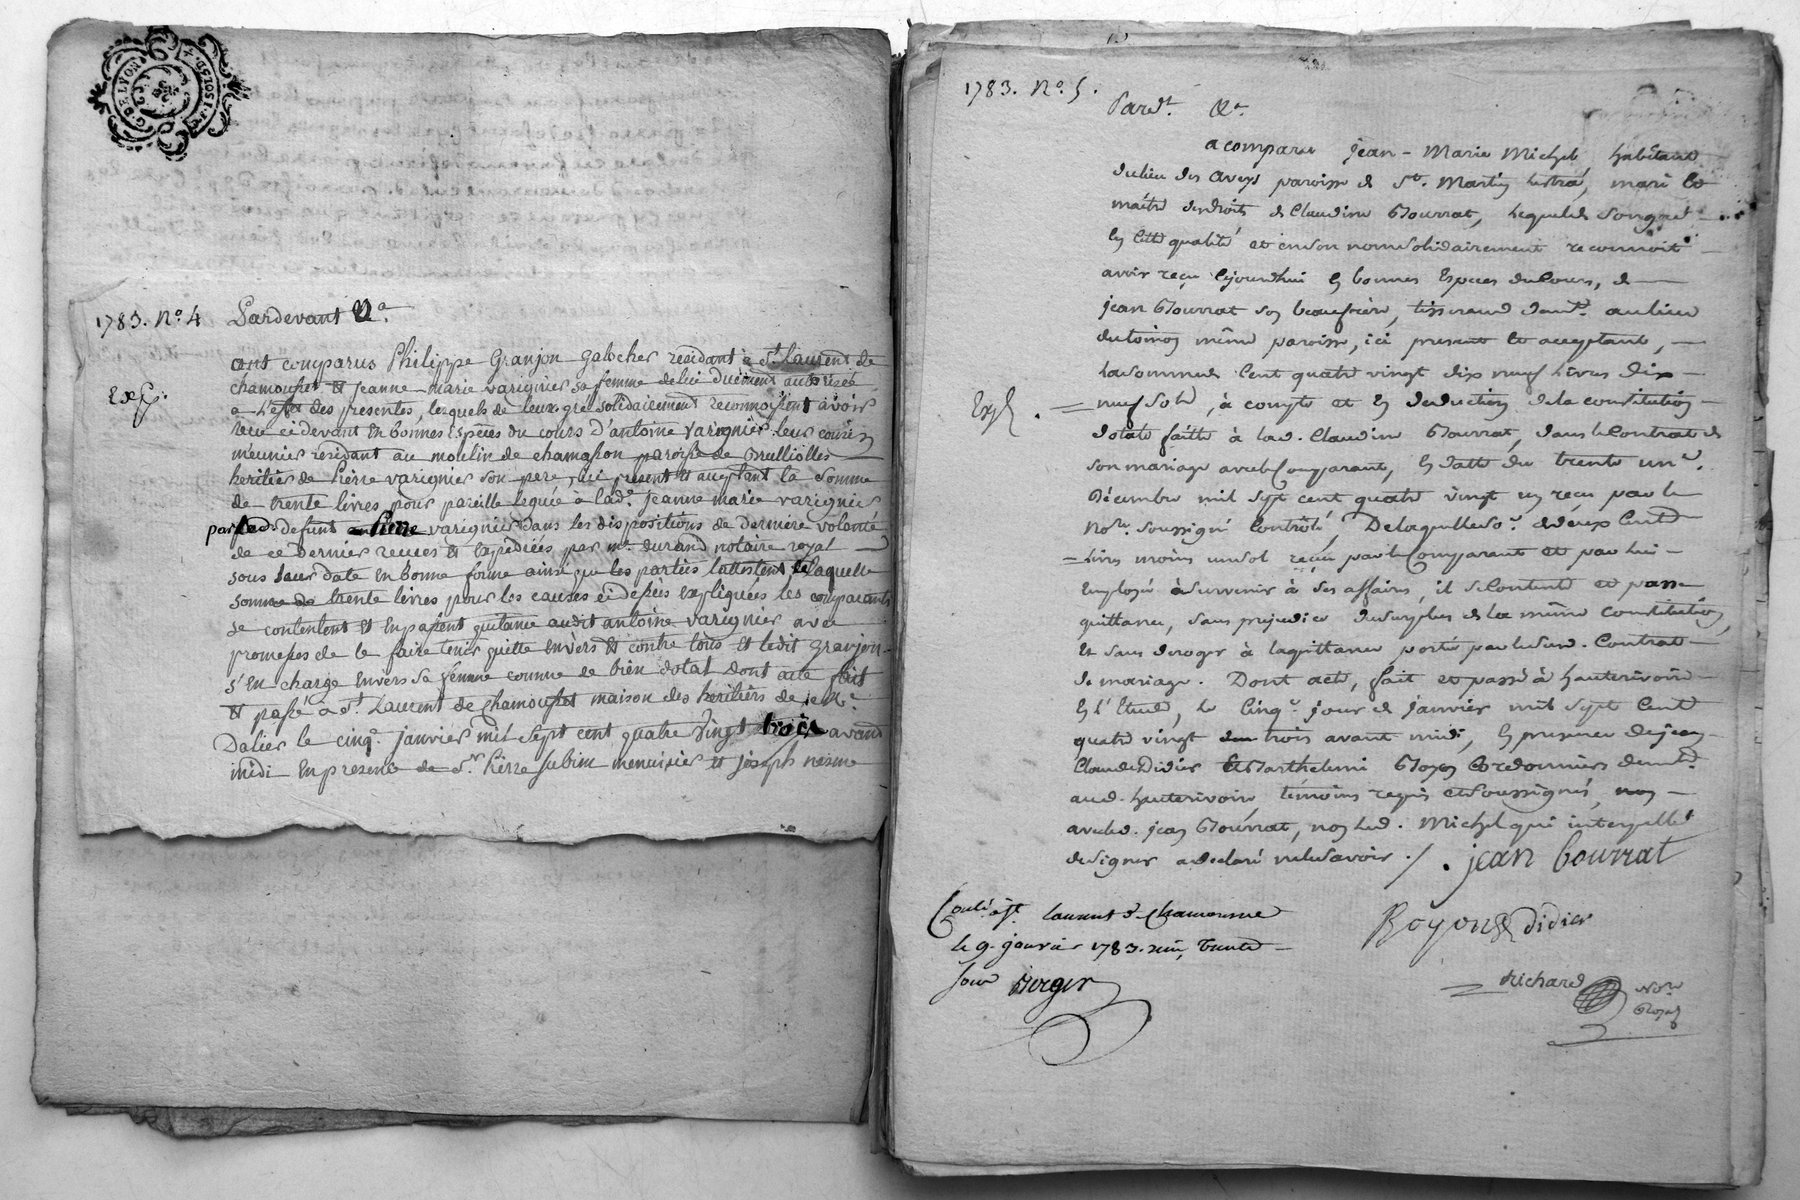 G. DE LYON
1783. N.o 4 Pardevant &a.
Exp.
ont comparus Philippe Granjon galocher residant a St. Laurent de
chamousset et jeanne-marie varignier sa femme de lui duement autorisée
a l'effet des presentes, lesquels de leur gré solidairement reconnoissent avoir
recu ci devant en bonnes especes du cours d'antoine varignier leur cousin
meunier residant au moulin de chamasson paroisse de Brulliolles
heritier de Pierre varignier son pere, ici present et acceptant la somme
de trente livres pour pareille leguée à lad.e jeanne marie varignier
par led. defunt Pierre varignier dans les dispositions de derniere volonté
de ce dernier recues et expediées par me. durand notaire royal
sous leur date en bonne forme ainsi que les parties l'attestent, de laquelle
somme de trente livres pour les causes ci dessus expliquées les comparants
se contentent et en passent quittance audit antoine varignier avec
promesses de le faire tenir quitte envers et contre tous et ledit Granjon
s'en charge envers sa femme comme de bien dotal dont acte fait
et passé a St. Laurent de Chamousset maison des heritiers de
Dalier le cinq.e janvier mil sept cent quatre vingt trois avant
midi en presence de Sr. Pierre Subim menuisier et joseph nesme
1783. N.o 5.
Pard.t &a.
a comparu jean-Marie Michel habitant
du lieu des aveys paroisse de St. Martin lestra, mari et
maitre des droits de Claudine Bourrat, lequel de son gré
en cette qualité et en son nom solidairement reconnoit
avoir reçu cejourdhui en bonnes Especes du Cours, de
jean Bourrat son beaufrere, tisserand dem.t au lieu
du même paroisse, ici present et acceptant,
la somme de Cent quatre vingt dix neuf livres dix
Exp.
neuf sols, à compte et en deduction de la constitution
dotale faitte à lad. Claudine Bourrat, dans le Contrat de
son mariage avec le Comparant, en datte du trente un.e
Décembre mil sept cent quatre vingt un reçu par le
No.re soussigné Controlé, De laquelle so.e de deux Cent
livres moins un sol reçue par le Comparant et par lui
employé à survenir à ses affaires, il se Contente et passe
quittance, sans prejudice du surplus de la même Constitution,
et sans deroger à la quittance portée par le susd. Contrat
de mariage. Dont acte, fait et passé à hauterivoire
en l'Etude, le Cinq.e jour de janvier mil sept Cent
quatre vingt trois avant midi, en presence de jean
Claude Didier et Barthelemi Royon Cordonniers dem.t
aud. hauterivoire, témoins requis et soussignés,
avec led. jean Bourrat, non led. Michel qui interpellé
de signer a declaré ne le savoir ./. jean bourrat
Royon didier
Richard No.re Royal
Conlé. a St. laurent d. Chamousset
le 9. janvier 1783. reçu, trente
sous Berger